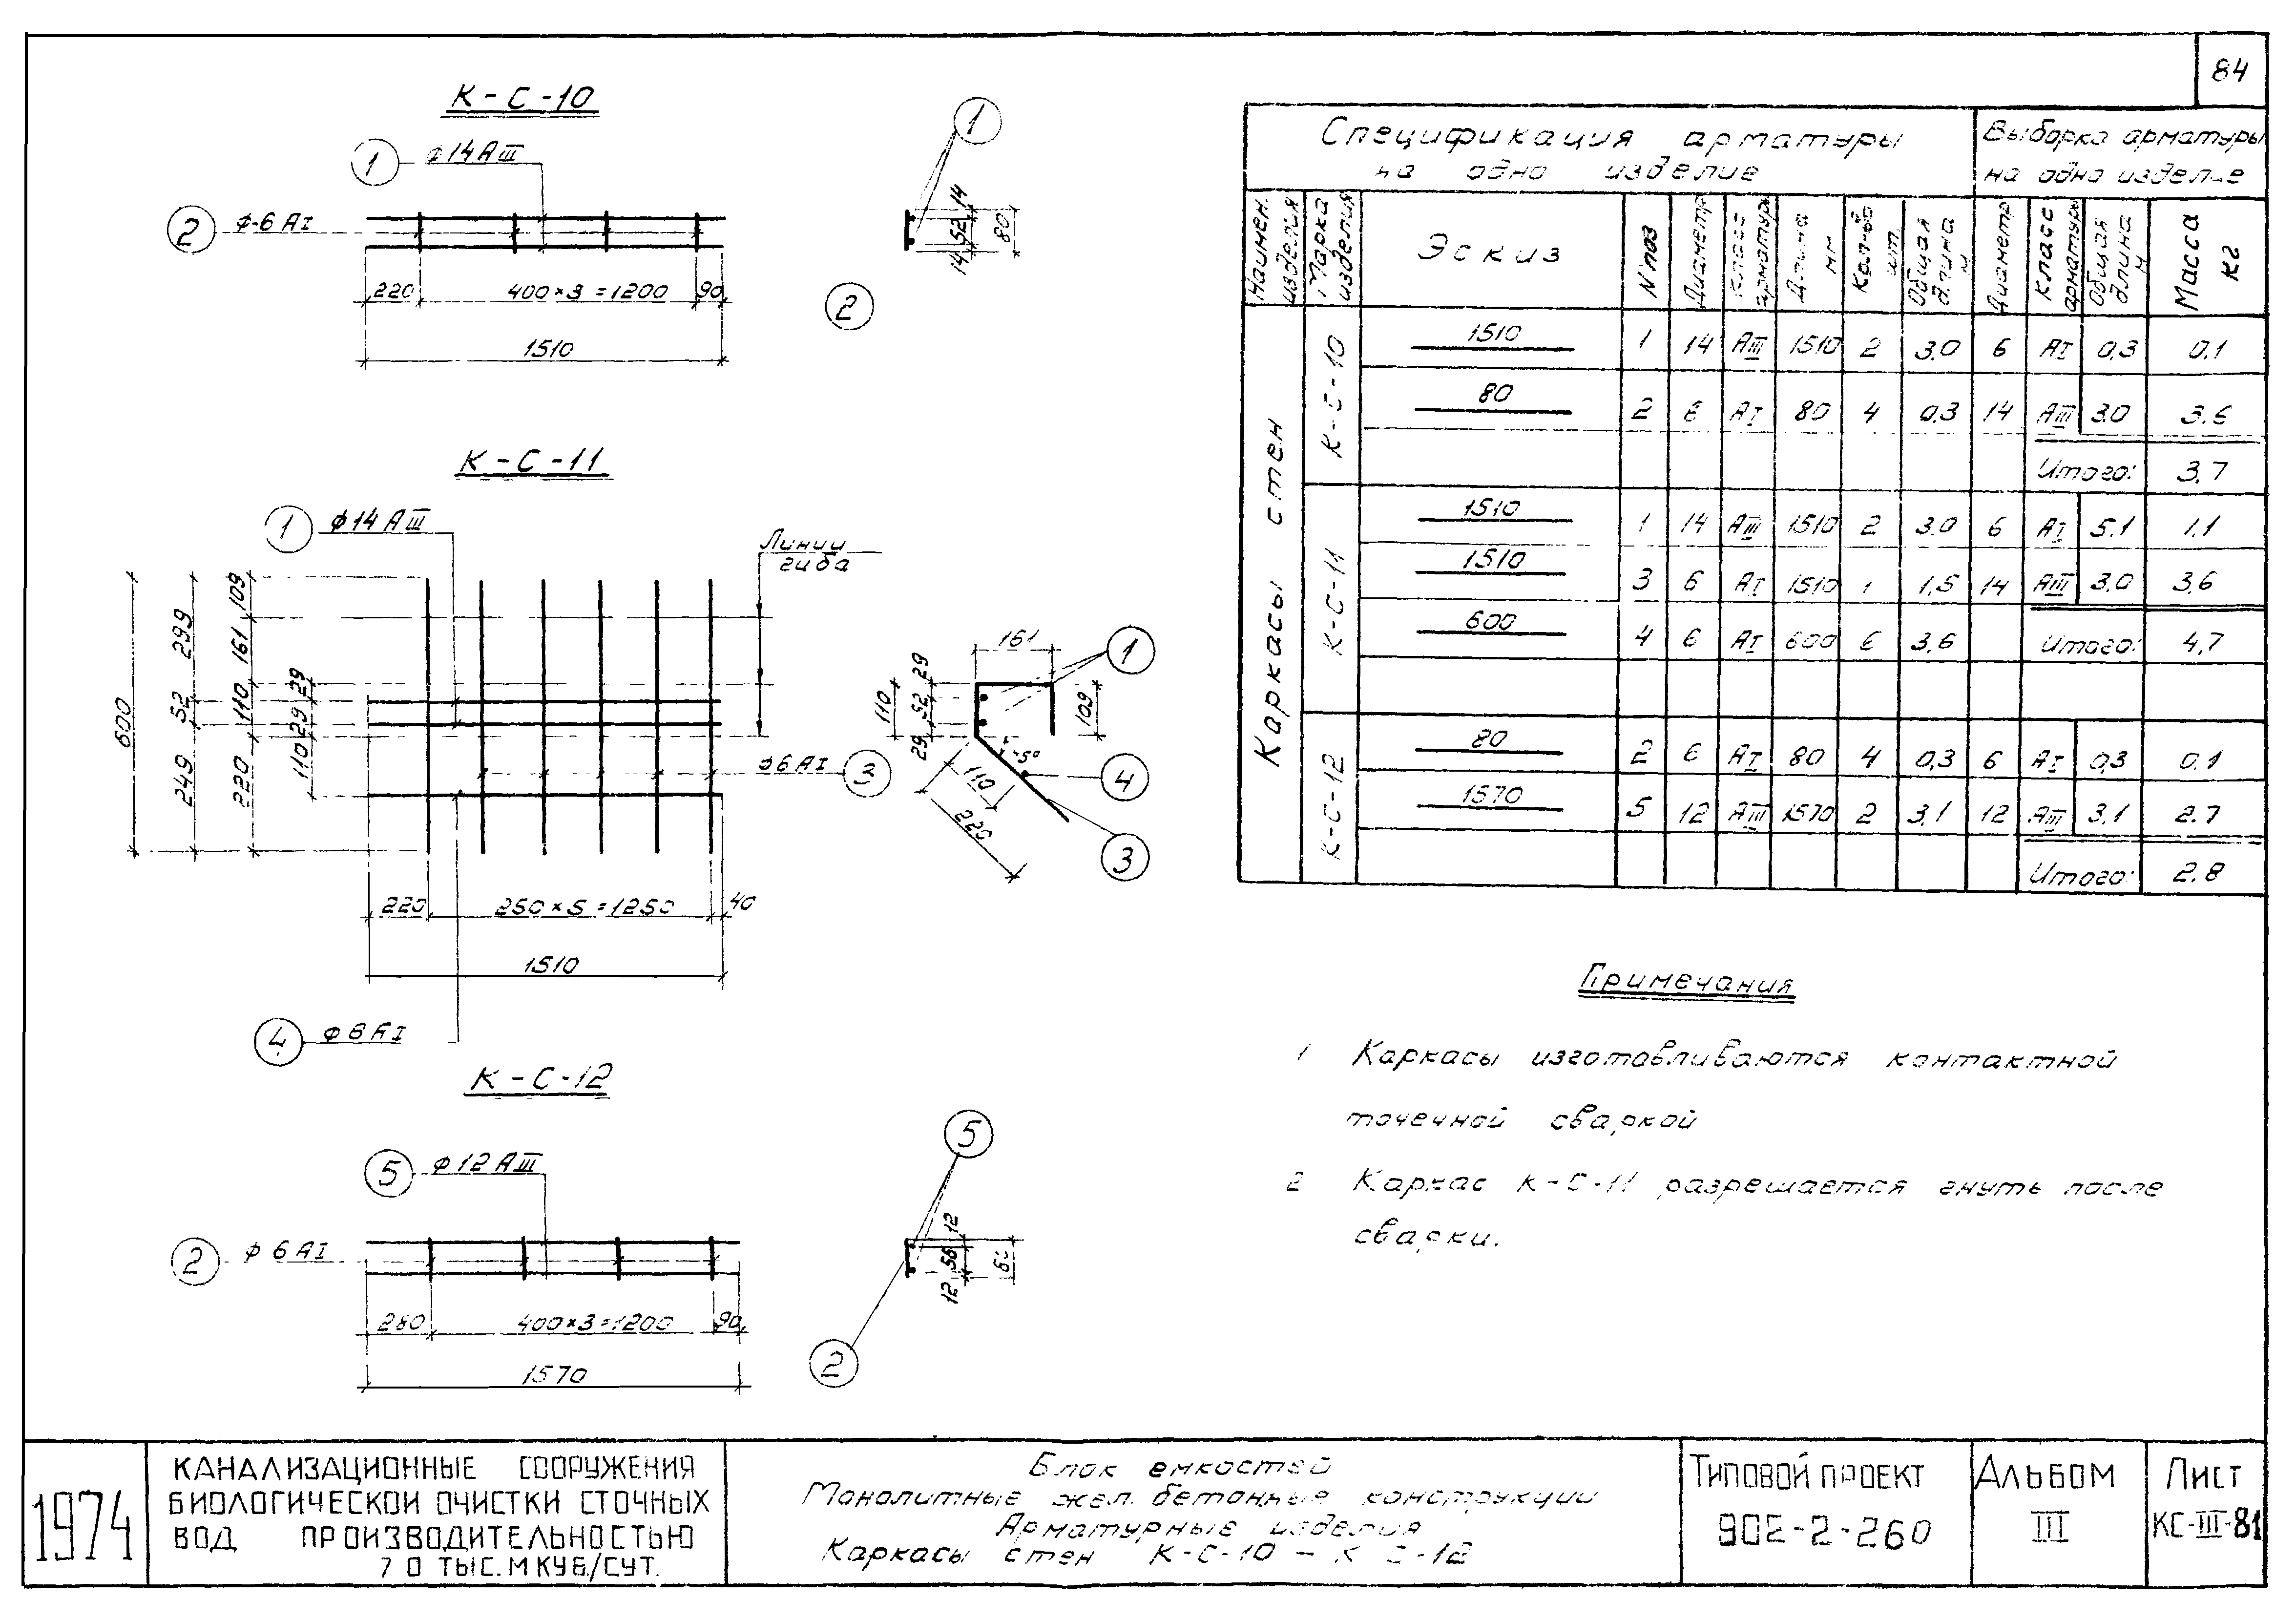 84
К-С-10
1 ф14АIII
2 ф-6АI
220 400×3=1200 90
1510
1
14 52 14 80
2
К-С-11
1 ф14АIII
Линии
гиба
600
299 52 249
109 161 110 220
29 29 110
ф6АI 3
220 250×5=1250 40
1510
4 ф6АI
161
1
110 29 52 29
109
110
220
4
3
К-С-12
5 ф12АIII
2 ф6АI
280 400×3=1200 90
1570
5
12 56 12
2
Спецификация арматуры
на одно изделие
Выборка арматуры
на одно изделие
Наимен. изделия Марка изделия Эскиз N поз Диаметр Класс арматуры Длина мм Кол-во шт. Общая длина м Диаметр Класс арматуры Общая длина м Масса кг
Каркасы стен
К-С-10
1510 1 14 АIII 1510 2 3.0 6 АI 0,3 0.1
80 2 6 АI 80 4 0,3 14 АIII 3.0 3.6
Итого: 3,7
К-С-11
1510 1 14 АIII 1510 2 3.0 6 АI 5.1 1.1
1510 3 6 АI 1510 1 1,5 14 АIII 3.0 3,6
600 4 6 АI 600 6 3.6 Итого: 4,7
К-С-12
80 2 6 АI 80 4 0,3 6 АI 0,3 0.1
1570 5 12 АIII 1570 2 3,1 12 АIII 3,1 2.7
Итого: 2.8
Примечания
1 Каркасы изготавливаются контактной
точечной сваркой
2 Каркас К-С-11 разрешается гнуть после
сварки.
1974
КАНАЛИЗАЦИОННЫЕ СООРУЖЕНИЯ
БИОЛОГИЧЕСКОЙ ОЧИСТКИ СТОЧНЫХ
ВОД ПРОИЗВОДИТЕЛЬНОСТЬЮ
70 ТЫС. М КУБ./СУТ.
Блок емкостей
Монолитные жел. бетонные конструкции
Арматурные изделия
Каркасы стен К-С-10 – К С-12
ТИПОВОЙ ПРОЕКТ
902-2-260
АЛЬБОМ
III
ЛИСТ
КС-III-81